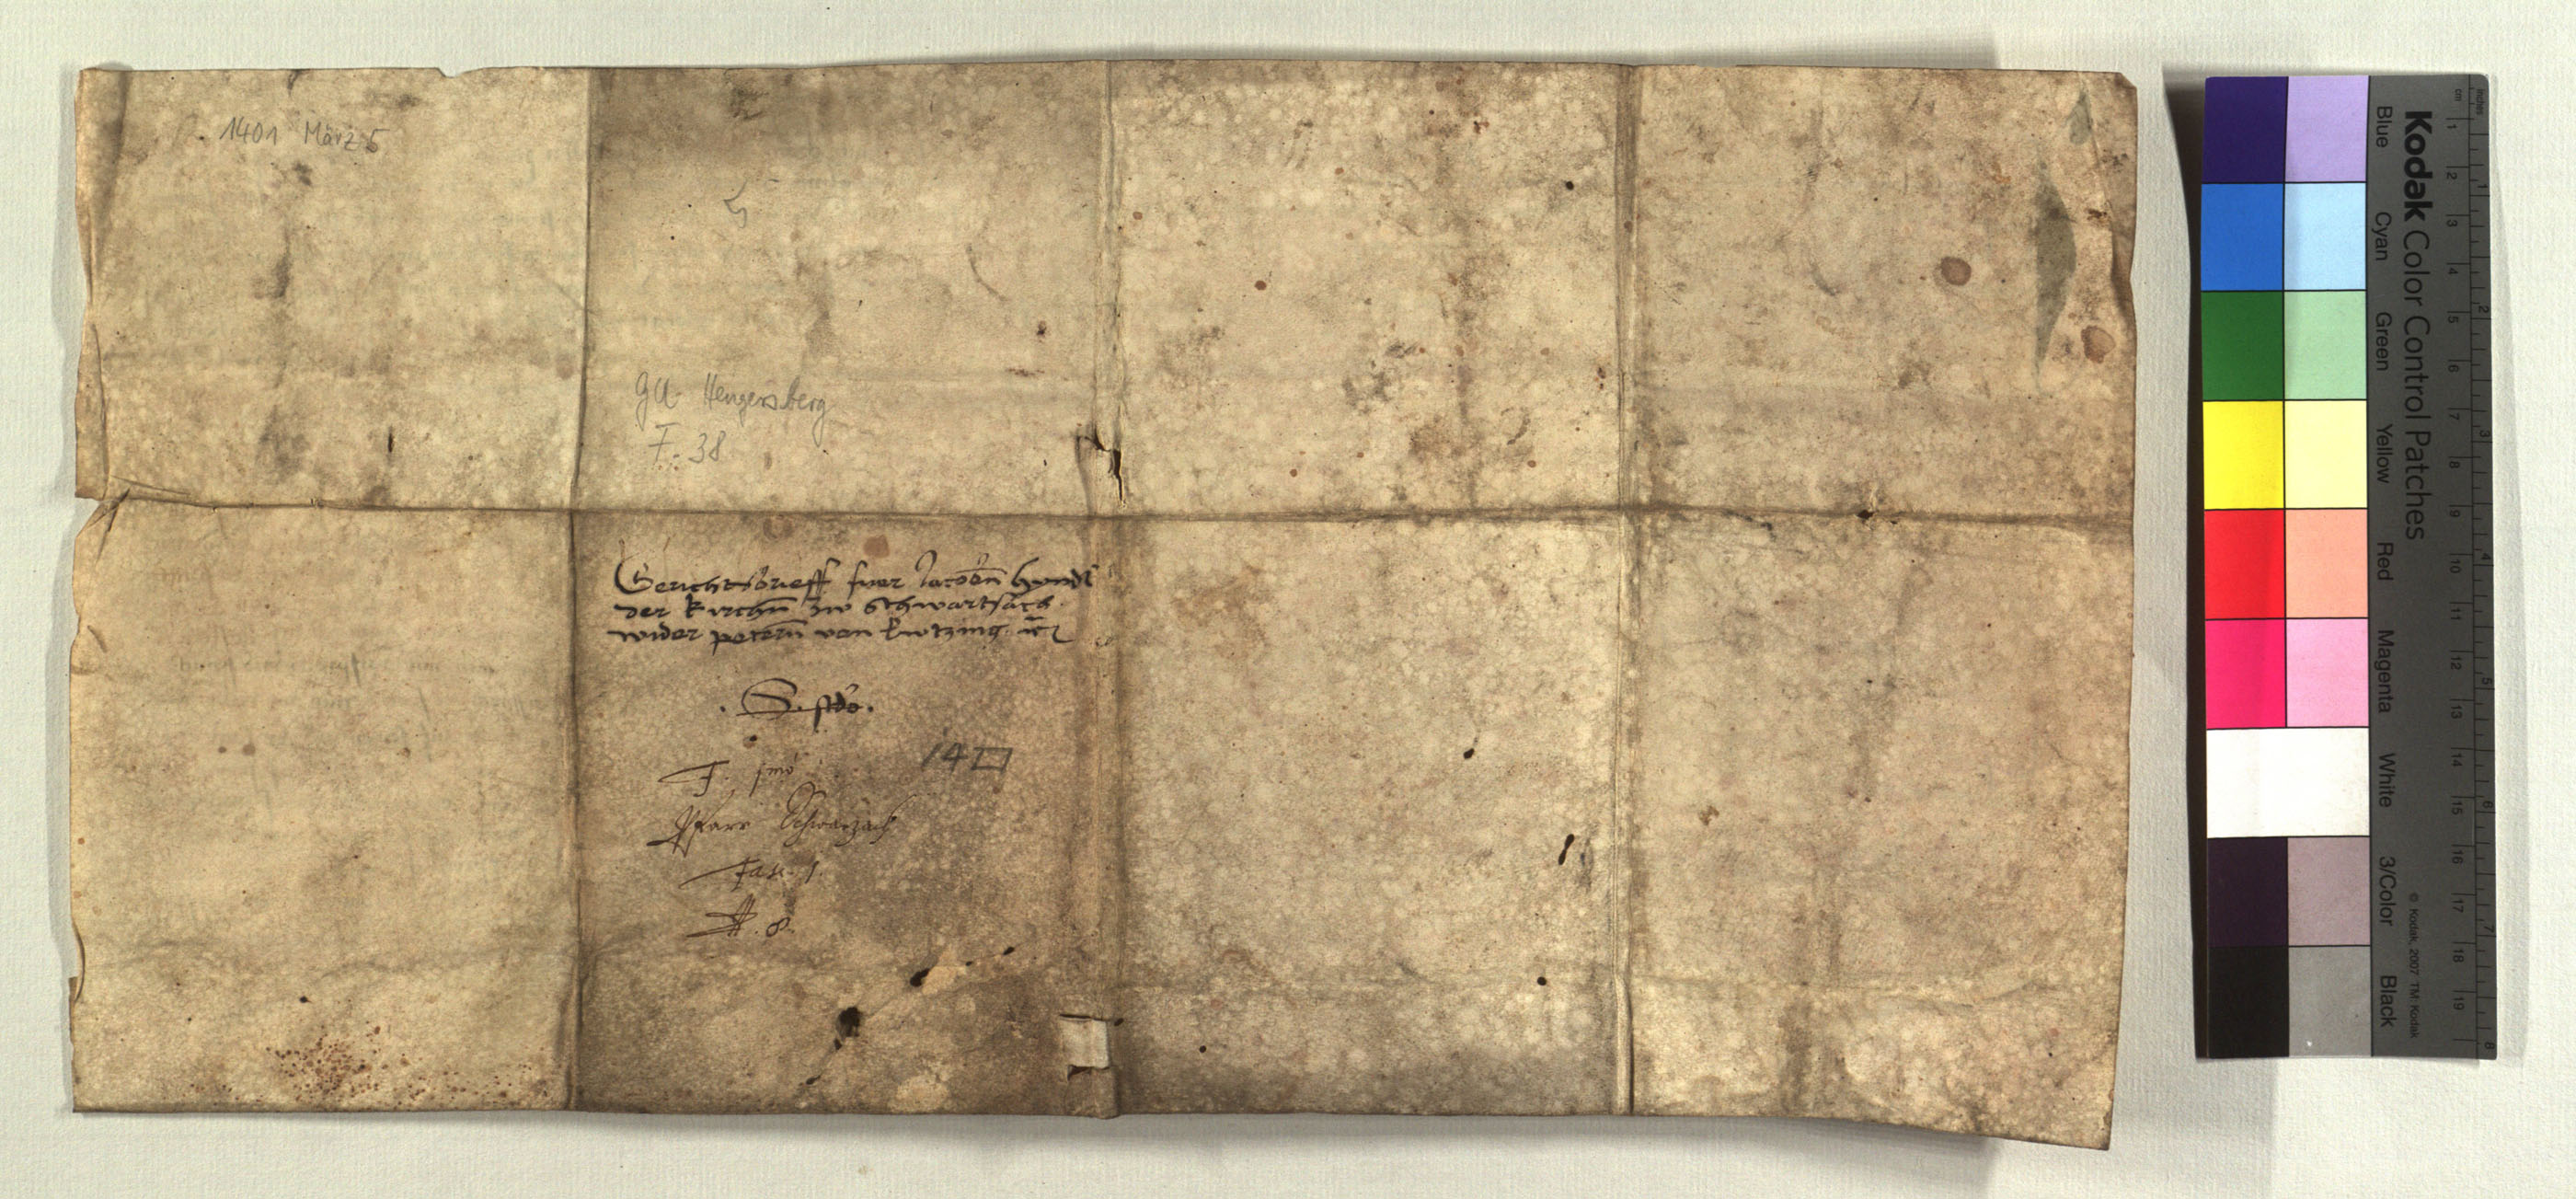 1401 März 5
GU Hengersberg
F. 38
Gerichtsbrieff fuer Jacobn hundt
der kirchn zw Schwartsach
wider petern von kutzing
S.
14
F. jmo
Pfarr Schwarzach
Fasc. 1.
N. 8.
Kodak Color Control Patches
Blue Cyan Green Yellow Red Magenta White 3/Color Black
© Kodak, 2007 TM: Kodak
cm 1 2 3 4 5 6 7 8 9 10 11 12 13 14 15 16 17 18 19
inches 1 2 3 4 5 6 7 8